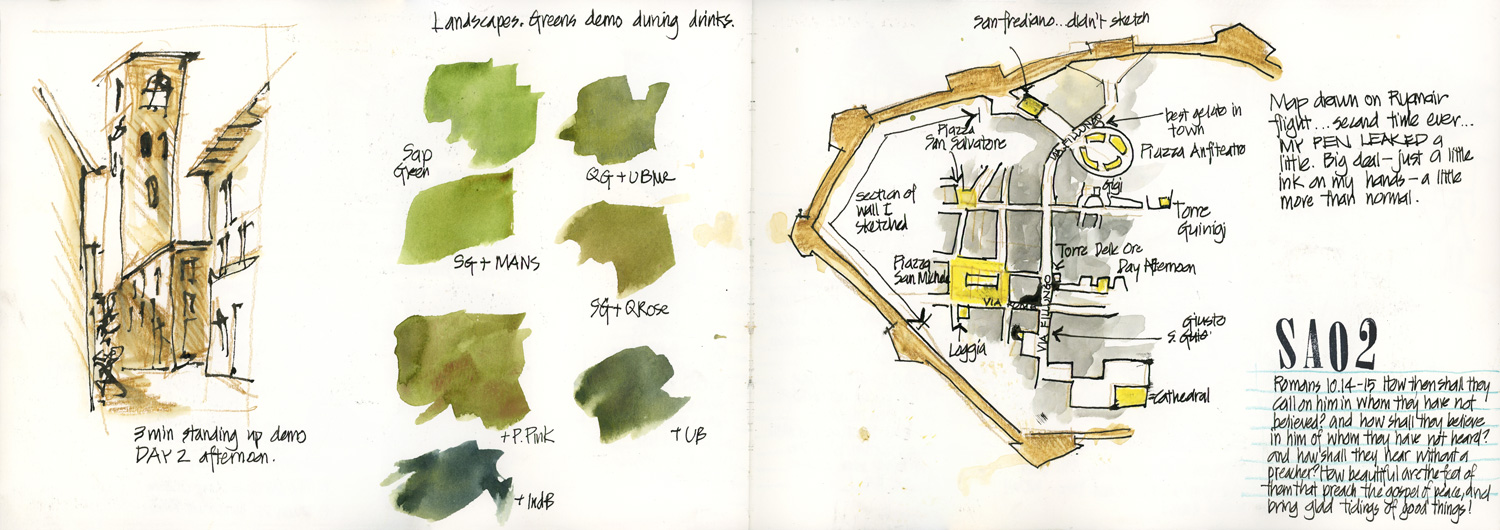 Landscapes. Greens demo during drinks.
Sap
Green
QG + UBlue
SG + MANS
SG + QRose
+ P. Pink
+ UB
+ IndB
3 min standing up demo
DAY 2 afternoon.
San Frediano... didn't sketch
best gelato in
town
Piazza Anfiteatro
Piazza
San Salvatore
VIA FILLUNGO
Gigi
section of
wall I
sketched
Torre
Guinigi
Torre Delle Ore
Day Afternoon
Piazza
San Michele
VIA
VIA FILLUNGO
Loggia
Giusto
Cathedral
Map drawn on Ryanair
flight... second time ever...
MY PEN LEAKED a
little. Big deal - just a little
ink on my hands - a little
more than normal.
SA02
Romans 10.14-15 How then shall they
call on him in whom they have not
believed? and how shall they believe
in him of whom they have not heard?
and how shall they hear without a
preacher? How beautiful are the feet of
them that preach the gospel of peace, and
bring glad tidings of good things!